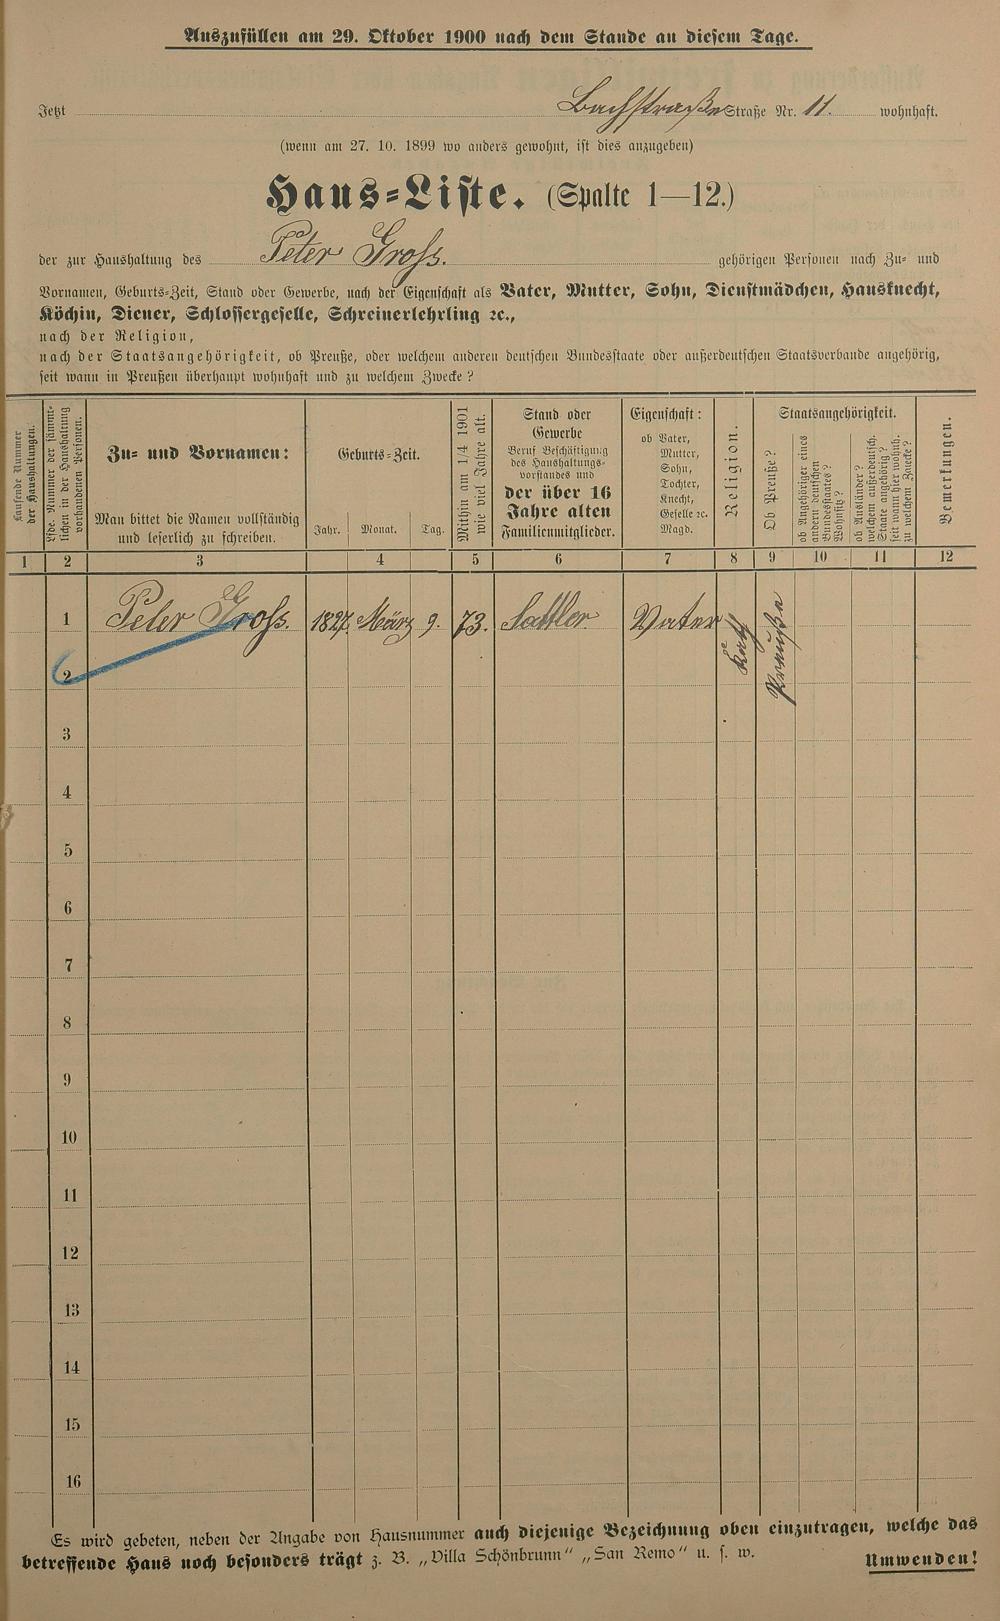 Auszufüllen am 29. Oktober 1900 nach dem Stande an diesem Tage.
Jetzt Bachstraße Straße Nr. 11. wohnhaft.
(wenn am 27. 10. 1899 wo anders gewohnt, ist dies anzugeben)
Haus=Liste. (Spalte 1—12.)
der zur Haushaltung des Peter Gross. gehörigen Personen nach Zu= und
Vornamen, Geburts=Zeit, Stand oder Gewerbe, nach der Eigenschaft als Vater, Mutter, Sohn, Dienstmädchen, Hausknecht,
Köchin, Diener, Schlossergeselle, Schreinerlehrling ꝛc.,
nach der Religion,
nach der Staatsangehörigkeit, ob Preuße, oder welchem anderen deutschen Bundesstaate oder außerdeutschen Staatsverbande angehörig,
seit wann in Preußen überhaupt wohnhaft und zu welchem Zwecke?
Laufende Nummer
der Haushaltungen.
Lfde. Nummer der sämmt=
lichen in der Haushaltung
vorhandenen Personen.
Zu= und Vornamen:
Man bittet die Namen vollständig
und leserlich zu schreiben.
Geburts=Zeit.
Jahr. Monat. Tag.
Mithin am 1/4 1901
wie viel Jahre alt.
Stand oder
Gewerbe
Beruf Beschäftigung
des Haushaltungs=
vorstandes und
der über 16
Jahre alten
Familienmitglieder.
Eigenschaft:
ob Vater,
Mutter,
Sohn,
Tochter,
Knecht,
Geselle ꝛc.
Magd.
Religion.
Staatsangehörigkeit.
Ob Preuße?
ob Angehöriger eines
andern deutschen
Bundesstaates?
Wohnsitz?
ob Ausländer?
welchem außerdeutsch.
Staate angehörig?
seit wann hier wohnh.
zu welchem Zwecke?
Bemerkungen.
1 2 3 4 5 6 7 8 9 10 11 12
1 Peter Gross. 1827. März 9. 73. Sattler Vater kath Preuße
2
3
4
5
6
7
8
9
10
11
12
13
14
15
16
Es wird gebeten, neben der Angabe von Hausnummer auch diejenige Bezeichnung oben einzutragen, welche das
betreffende Haus noch besonders trägt z. B. „Villa Schönbrunn" „San Remo" u. s. w. Umwenden!